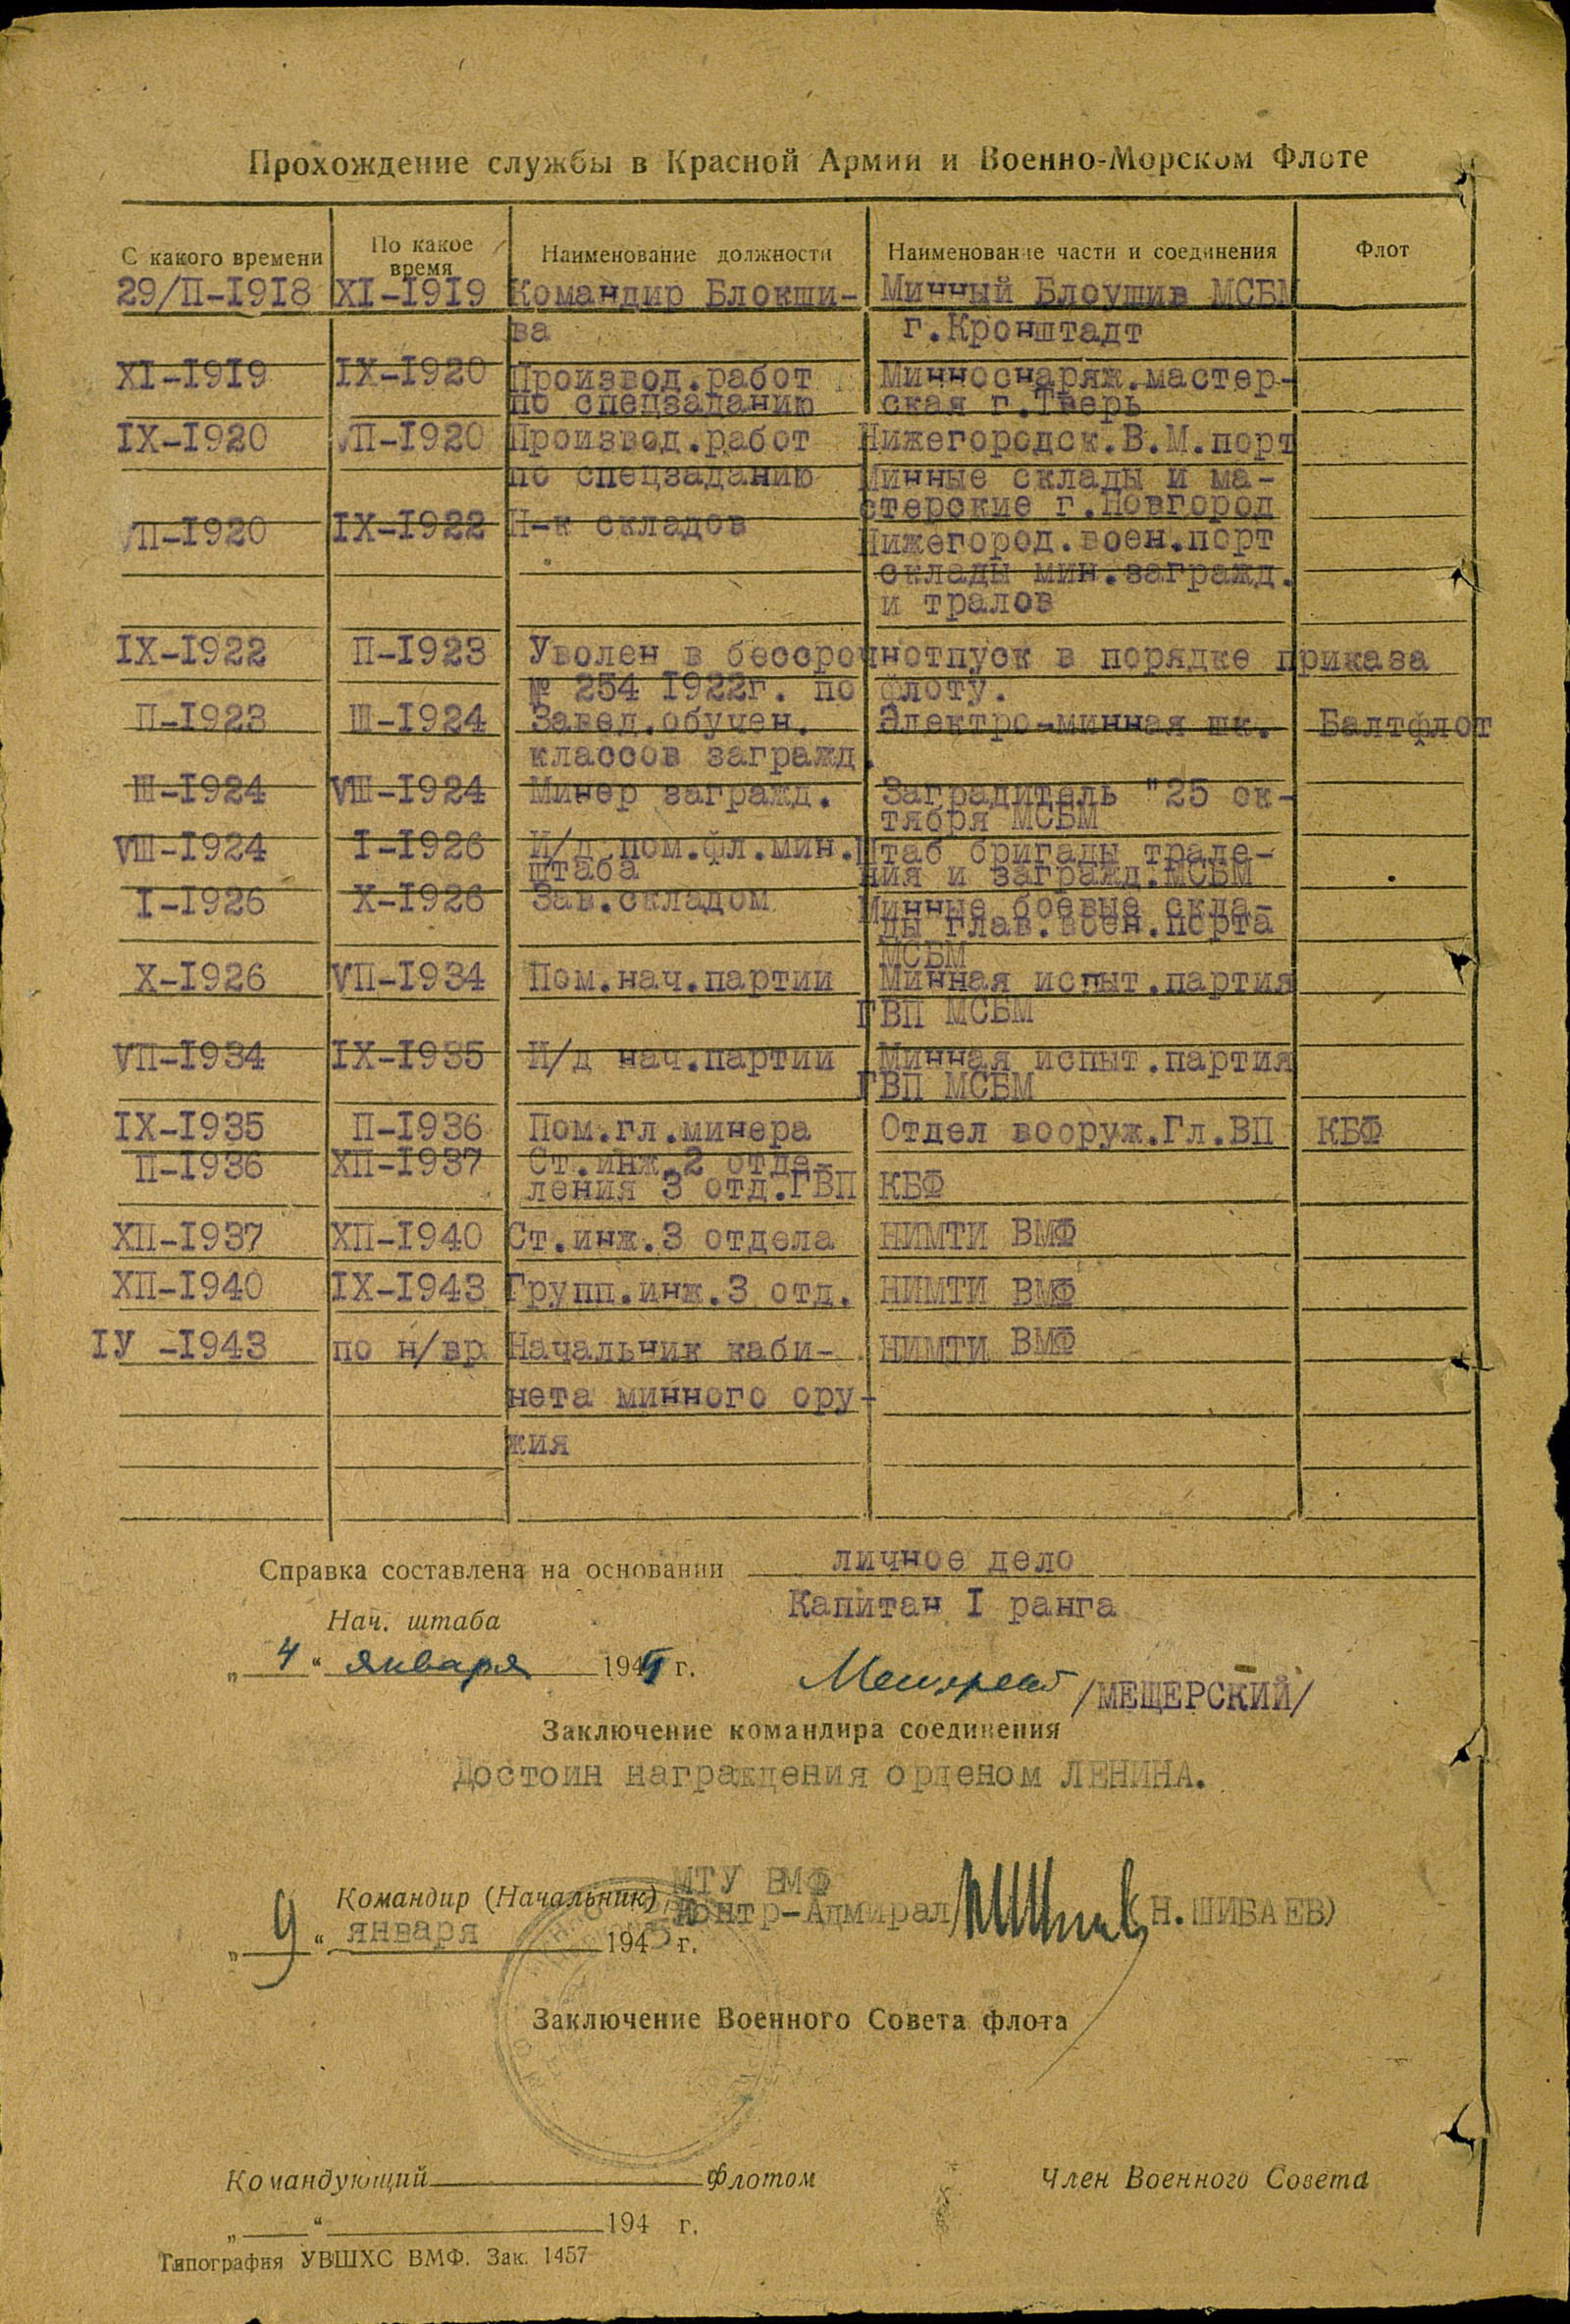 Прохождение службы в Красной Армии и Военно-Морском Флоте
С какого времени По какое время Наименование должности Наименование части и соединения Флот
29/П-1918 XI-1919 Командир Блокши- Минный Блоушив МСБМ
ва г.Кронштадт
XI-1919 IX-1920 Производ.работ Минноснаряж.мастер-
по спецзаданию ская г.Тверь
IX-1920 УП-1920 Производ.работ Нижегородск.В.М.порт
по спецзаданию Минные склады и ма-
стерские г.Новгород
УП-1920 IX-1922 Н-к складов
Нижегород.воен.порт
склады мин.загражд.
и тралов
IX-1922 П-1923 Уволен в бессрочнотпуск в порядке приказа
№ 254 1922г. по флоту.
П-1923 Ш-1924 Завед.обучен. Электро-минная шк. Балтфлот
классов загражд.
Ш-1924 УШ-1924 Минер загражд. Заградитель "25 ок-
тября МСБМ
УШ-1924 I-1926 И/д пом.фл.мин. Штаб бригады трале-
штаба ния и загражд.МСБМ
I-1926 X-1926 Зав.складом Минные боевые скла-
ды глав.воен.порта
МСБМ
X-1926 УП-1934 Пом.нач.партии Минная испыт.партия
ГВП МСБМ
УП-1934 IX-1935 И/д нач.партии Минная испыт.партия
ГВП МСБМ
IX-1935 П-1936 Пом.гл.минера Отдел вооруж.Гл.ВП КБФ
П-1936 ХП-1937 Ст.инж.2 отде-
ления 3 отд.ГВП КБФ
ХП-1937 ХП-1940 Ст.инж.3 отдела НИМТИ ВМФ
ХП-1940 IX-1943 Групп.инж.3 отд. НИМТИ ВМФ
IУ -1943 по н/вр Начальник каби- НИМТИ ВМФ
нета минного ору-
жия
Справка составлена на основании личное дело
Нач. штаба Капитан I ранга
„4“ января 1945 г. Мещерский /МЕЩЕРСКИЙ/
Заключение командира соединения
Достоин награждения орденом ЛЕНИНА.
МТУ ВМФ
Командир (Начальник) Контр-Адмирал Н.ШИБАЕВ)
„9“ января 1945 г.
Заключение Военного Совета флота
Командующий Флотом Член Военного Совета
„ “ 194 г.
Типография УВШХС ВМФ. Зак. 1457